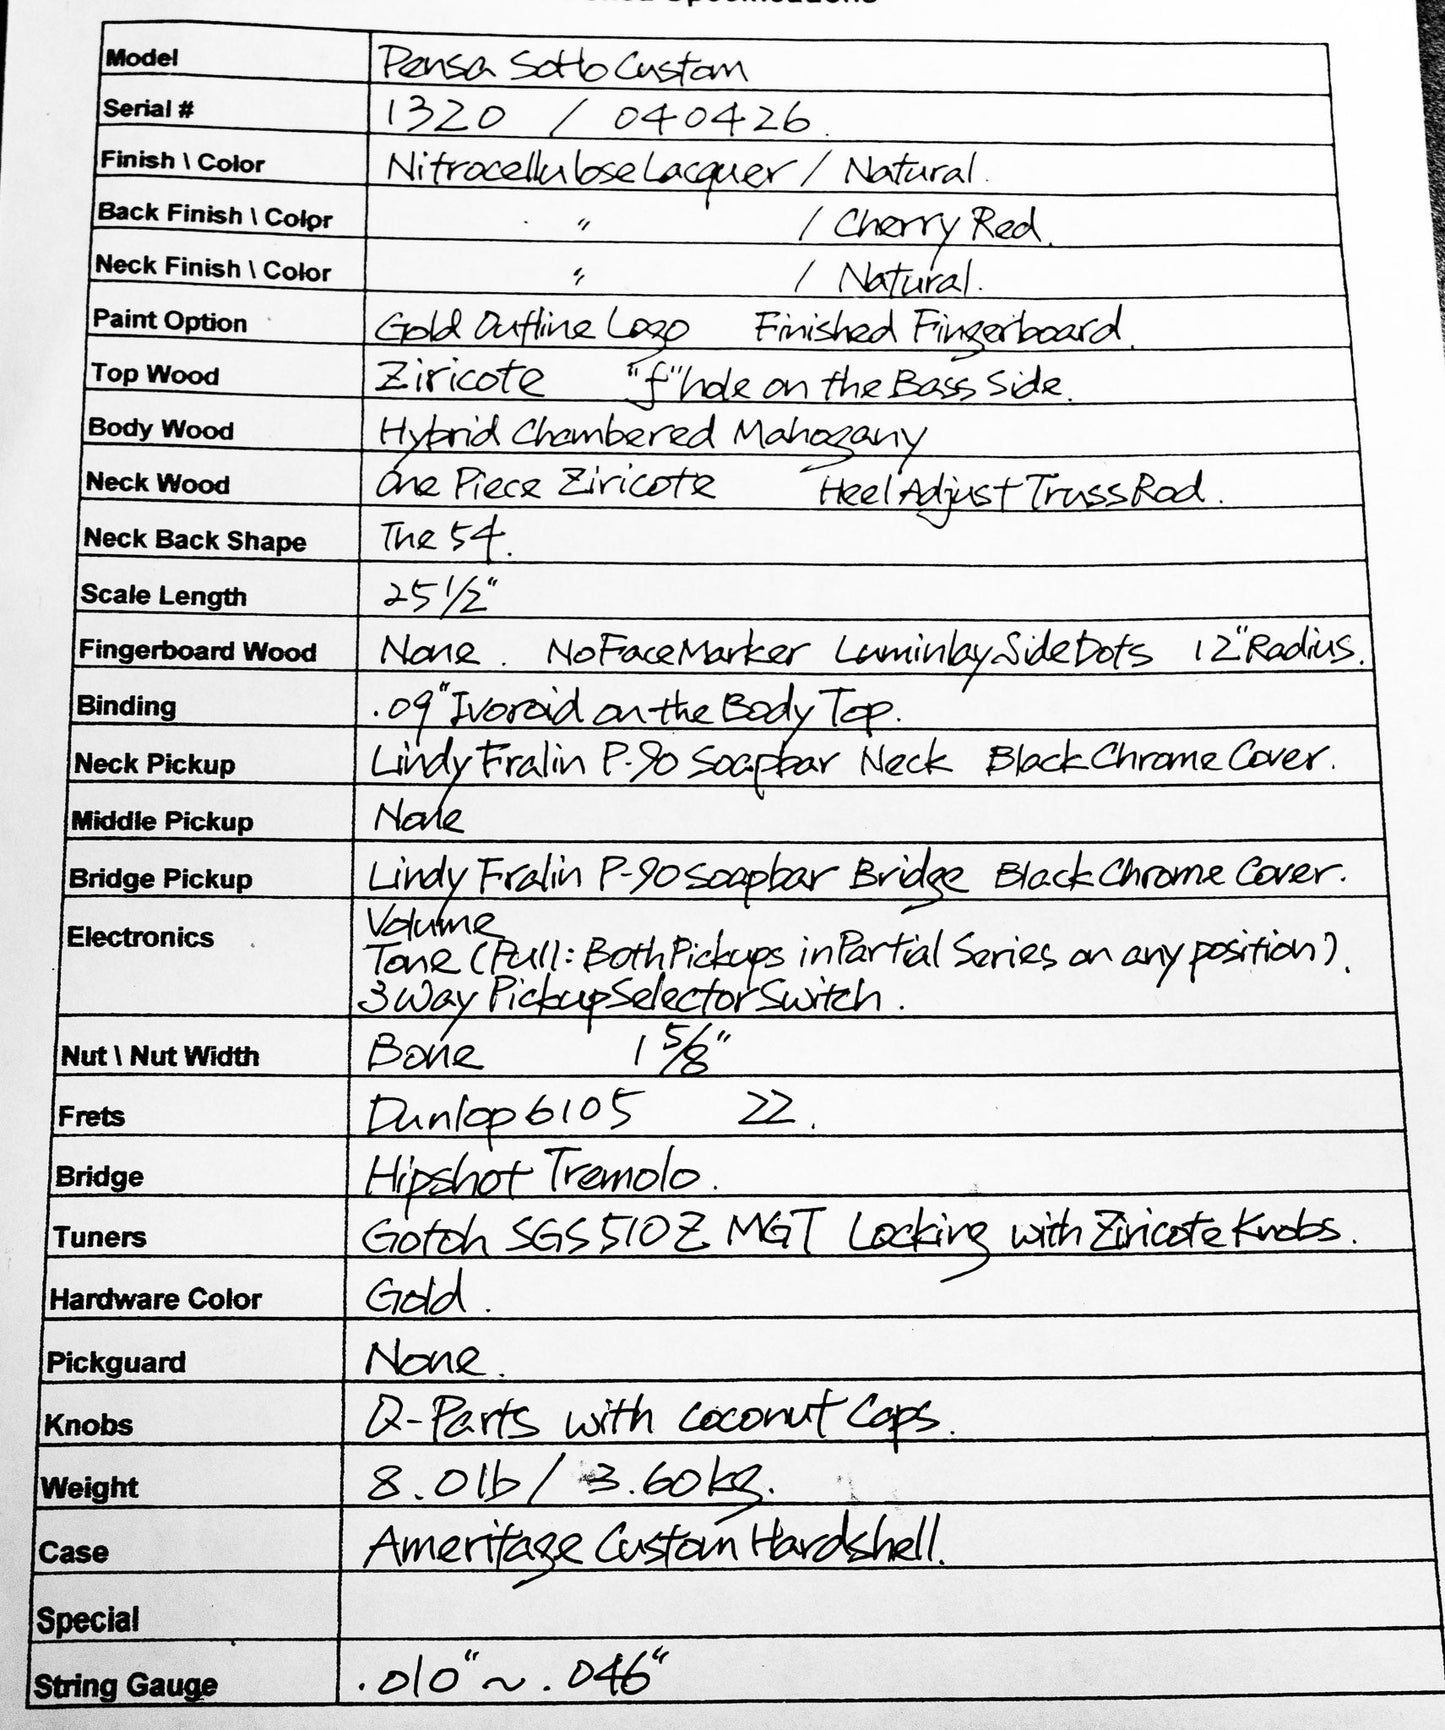 Specifications
Model Pensa Sotto Custom
Serial # 1320 / 040426.
Finish \ Color Nitrocellulose Lacquer / Natural.
Back Finish \ Color " / Cherry Red.
Neck Finish \ Color " / Natural.
Paint Option Gold Outline Logo Finished Fingerboard.
Top Wood Ziricote "f" hole on the Bass Side.
Body Wood Hybrid Chambered Mahogany
Neck Wood One Piece Ziricote Heel Adjust Truss Rod.
Neck Back Shape The 54.
Scale Length 25 1/2"
Fingerboard Wood None. No Face Marker Luminlay Side Dots 12" Radius.
Binding .09" Ivoroid on the Body Top.
Neck Pickup Lindy Fralin P-90 Soapbar Neck Black Chrome Cover.
Middle Pickup None
Bridge Pickup Lindy Fralin P-90 Soapbar Bridge Black Chrome Cover.
Electronics Volume
Tone (Pull: Both Pickups in Partial Series on any position).
3 Way Pickup Selector Switch.
Nut \ Nut Width Bone 1 5/8"
Frets Dunlop 6105 22.
Bridge Hipshot Tremolo.
Tuners Gotoh SGS510Z MGT Locking with Ziricote Knobs.
Hardware Color Gold.
Pickguard None.
Knobs Q-Parts with Coconut Caps.
Weight 8.0lb / 3.60kg.
Case Ameritage Custom Hardshell.
Special
String Gauge .010" ~ .046"